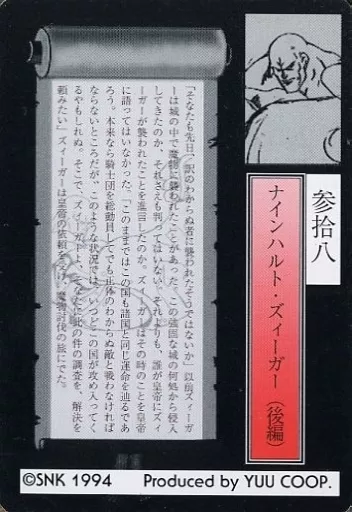 参拾八
ナインハルト・ズィーガー（後編）
「そなたも先日、訳のわからぬ者に襲われたそうではないか」以前ズィーガ
ーは城の中で魔物に襲われたことがあった。この強固な城の何処から侵入
してきたのか、それさえも判ってはいない。それよりも、誰が皇帝にズィ
ーガーが襲われたことを進言したのか。ズィーガーはその時のことを皇帝
に語ってはいなかった。「このままではこの国も諸国と同じ運命を辿るであ
ろう。本来なら騎士団を総動員してでも正体のわからぬ敵と戦わなければ
ならないところだが、このような状況では、いつどこの国が攻め入ってく
るやもしれぬ。そこで、ズィーガーよ、そなたに此の件の調査を、解決を
頼みたい」ズィーガーは皇帝の依頼を受け、魔物討伐の旅にでた。
©SNK 1994 Produced by YUU COOP.